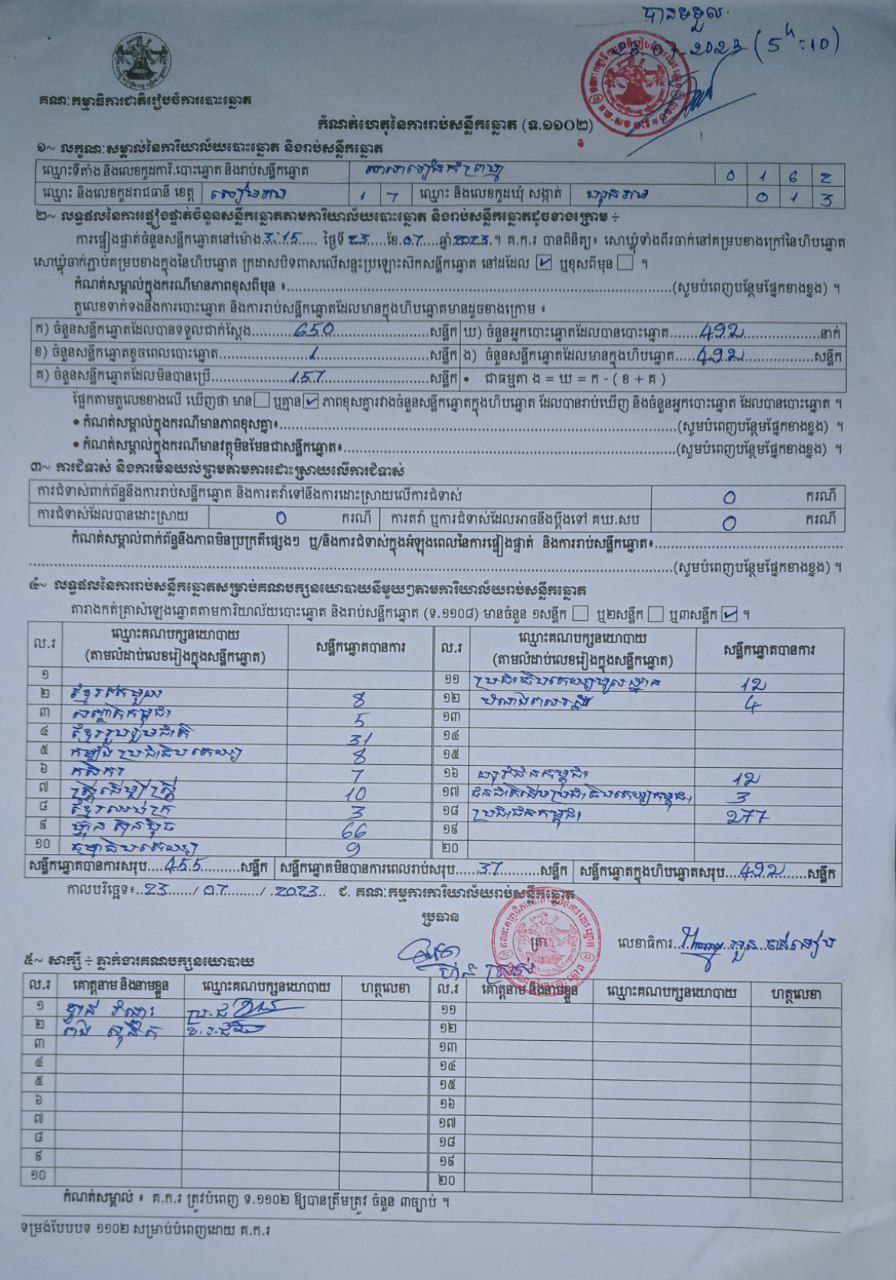 បានទទួល
23.07.2023 (5h:10)
គណៈកម្មាធិការជាតិរៀបចំការបោះឆ្នោត
កំណត់ហេតុនៃការរាប់សន្លឹកឆ្នោត (ទ.១១០២)
១~ លក្ខណៈសម្គាល់នៃការិយាល័យបោះឆ្នោត និងរាប់សន្លឹកឆ្នោត
ឈ្មោះទីតាំង និងលេខកូដការិ.បោះឆ្នោត និងរាប់សន្លឹកឆ្នោត 0 1 6 2
ឈ្មោះ និងលេខកូដរាជធានី ខេត្ត សៀមរាប 1 7 ឈ្មោះ និងលេខកូដឃុំ សង្កាត់ 0 1 3
២~ លទ្ធផលនៃការផ្ទៀងផ្ទាត់ចំនួនសន្លឹកឆ្នោតតាមការិយាល័យបោះឆ្នោត និងរាប់សន្លឹកឆ្នោតដូចខាងក្រោម ៖
ការផ្ទៀងផ្ទាត់ចំនួនសន្លឹកឆ្នោតនៅម៉ោង 3:15 ថ្ងៃទី 23 ខែ 07 ឆ្នាំ 2023 ។ គ.ក.រ បានពិនិត្យ៖ សោឃ្លុំទាំងពីរចាក់នៅគម្របខាងក្រៅនៃហិបឆ្នោត
សោឃ្លុំចាក់ភ្ជាប់គម្របខាងក្នុងនៃហិបឆ្នោត ក្រដាសបិទពាសលើសន្ទះប្រឡោះស៊កសន្លឹកឆ្នោត នៅដដែល ☑ ឬខុសពីមុន ☐ ។
កំណត់សម្គាល់ក្នុងករណីមានភាពខុសពីមុន ៖ (សូមបំពេញបន្ថែមផ្នែកខាងខ្នង) ។
តួលេខទាក់ទងនឹងការបោះឆ្នោត និងការរាប់សន្លឹកឆ្នោតដែលមានក្នុងហិបឆ្នោតមានដូចខាងក្រោម ៖
ក) ចំនួនសន្លឹកឆ្នោតដែលបានទទួលជាក់ស្ដែង 650 សន្លឹក ឃ) ចំនួនអ្នកបោះឆ្នោតដែលបានបោះឆ្នោត 492 នាក់
ខ) ចំនួនសន្លឹកឆ្នោតខូចពេលបោះឆ្នោត 1 សន្លឹក ង) ចំនួនសន្លឹកឆ្នោតដែលមានក្នុងហិបឆ្នោត 492 សន្លឹក
គ) ចំនួនសន្លឹកឆ្នោតដែលមិនបានប្រើ 157 សន្លឹក • ជាធម្មតា ង = ឃ = ក - ( ខ + គ )
ផ្អែកតាមតួលេខខាងលើ ឃើញថា មាន ☐ ឬគ្មាន ☑ ភាពខុសគ្នារវាងចំនួនសន្លឹកឆ្នោតក្នុងហិបឆ្នោត ដែលបានរាប់ឃើញ និងចំនួនអ្នកបោះឆ្នោត ដែលបានបោះឆ្នោត ។
• កំណត់សម្គាល់ក្នុងករណីមានភាពខុសគ្នា៖ (សូមបំពេញបន្ថែមផ្នែកខាងខ្នង) ។
• កំណត់សម្គាល់ក្នុងករណីមានវត្ថុមិនមែនជាសន្លឹកឆ្នោត៖ (សូមបំពេញបន្ថែមផ្នែកខាងខ្នង) ។
៣~ ការជំទាស់ និងការមិនយល់ព្រមតាមការដោះស្រាយលើការជំទាស់
ការជំទាស់ពាក់ព័ន្ធនឹងការរាប់សន្លឹកឆ្នោត និងការតវ៉ាទៅនឹងការដោះស្រាយលើការជំទាស់ 0 ករណី
ការជំទាស់ដែលបានដោះស្រាយ 0 ករណី ការតវ៉ា ឬការជំទាស់ដែលអាចនឹងប្ដឹងទៅ គឃ.សប 0 ករណី
កំណត់សម្គាល់ពាក់ព័ន្ធនឹងភាពមិនប្រក្រតីផ្សេងៗ ឬ/និងការជំទាស់ក្នុងអំឡុងពេលនៃការផ្ទៀងផ្ទាត់ និងការរាប់សន្លឹកឆ្នោត៖
(សូមបំពេញបន្ថែមផ្នែកខាងខ្នង) ។
៤~ លទ្ធផលនៃការរាប់សន្លឹកឆ្នោតសម្រាប់គណបក្សនយោបាយនីមួយៗតាមការិយាល័យរាប់សន្លឹកឆ្នោត
តារាងកត់ត្រាសំឡេងឆ្នោតតាមការិយាល័យបោះឆ្នោត និងរាប់សន្លឹកឆ្នោត (ទ.១១០៨) មានចំនួន ១សន្លឹក ☐ ឬ២សន្លឹក ☐ ឬ៣សន្លឹក ☑ ។
ល.រ ឈ្មោះគណបក្សនយោបាយ សន្លឹកឆ្នោតបានការ ល.រ ឈ្មោះគណបក្សនយោបាយ សន្លឹកឆ្នោតបានការ
(តាមលំដាប់លេខរៀងក្នុងសន្លឹកឆ្នោត) (តាមលំដាប់លេខរៀងក្នុងសន្លឹកឆ្នោត)
១ ១១ ប្រជាធិបតេយ្យមូលដ្ឋាន 12
២ ខ្មែរតែមួយ 8 ១២ 4
៣ សញ្ជាតិកម្ពុជា 5 ១៣
៤ ខ្មែររួបរួមជាតិ 31 ១៤
៥ កម្លាំងប្រជាធិបតេយ្យ 8 ១៥
៦ កសិករ 7 ១៦ យុវជនកម្ពុជា 12
៧ ស្ត្រីដើម្បីស្ត្រី 10 ១៧ ជនជាតិដើមប្រជាធិបតេយ្យកម្ពុជា 3
៨ ខ្មែរឈប់ក្រ 3 ១៨ ប្រជាជនកម្ពុជា 277
៩ ហ្វ៊ុនស៊ិនប៉ិច 66 ១៩
១០ ធម្មាធិបតេយ្យ 9 ២០
សន្លឹកឆ្នោតបានការសរុប 455 សន្លឹក សន្លឹកឆ្នោតមិនបានការពេលរាប់សរុប 37 សន្លឹក សន្លឹកឆ្នោតក្នុងហិបឆ្នោតសរុប 492 សន្លឹក
កាលបរិច្ឆេទ៖ 23 / 07 / 2023 ជ. គណៈកម្មការការិយាល័យរាប់សន្លឹកឆ្នោត
ប្រធាន ត្រា លេខាធិការ
៥~ សាក្សី ៖ ភ្នាក់ងារគណបក្សនយោបាយ
ល.រ គោត្តនាម និងនាមខ្លួន ឈ្មោះគណបក្សនយោបាយ ហត្ថលេខា ល.រ គោត្តនាម និងនាមខ្លួន ឈ្មោះគណបក្សនយោបាយ ហត្ថលេខា
១ ប្រ.ជ ១១
២ ១២
៣ ១៣
៤ ១៤
៥ ១៥
៦ ១៦
៧ ១៧
៨ ១៨
៩ ១៩
១០ ២០
កំណត់សម្គាល់ ៖ គ.ក.រ ត្រូវបំពេញ ទ.១១០២ ឱ្យបានត្រឹមត្រូវ ចំនួន ៣ច្បាប់ ។
ទម្រង់បែបបទ ១១០២ សម្រាប់បំពេញដោយ គ.ក.រ